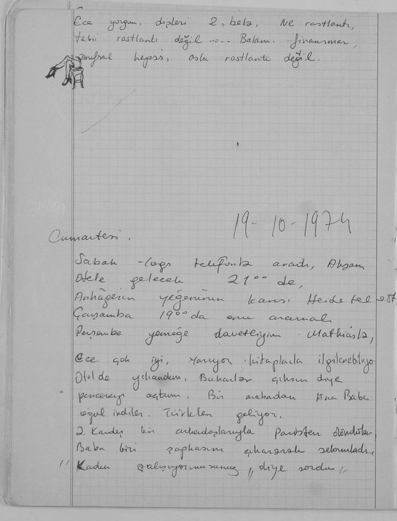 Ece yorgun, dişleri 2. bela, Ne rastlantı,
tabii rastlantı değil .... Bakam. finansman,
hepsi, asla rastlantı değil.
19-10-1974
Cumartesi.
Sabah telefonla aradı, Akşam
Otele gelecek 21°° de,
yeğeninin karısı Heide tel ett
Çarşamba 19°° da onu aramalı
Perşembe yemeğe davetliyim Mathias'la,
Ece çok iyi, yazıyor kitaplarla ilgilenebiliyo
Otelde yıkandım, Buharlar çıksın diye
pencereyi açtım. Bir arabadan Ana Baba
oğul indiler. Türkleler geliyor.
2. Kardeş bir arkadaşlarıyla Paristen döndüler,
Baba bizi şapkasını çıkararak selamladı,
" Kadın çalışıyormusunuz ,, diye sordu ,,